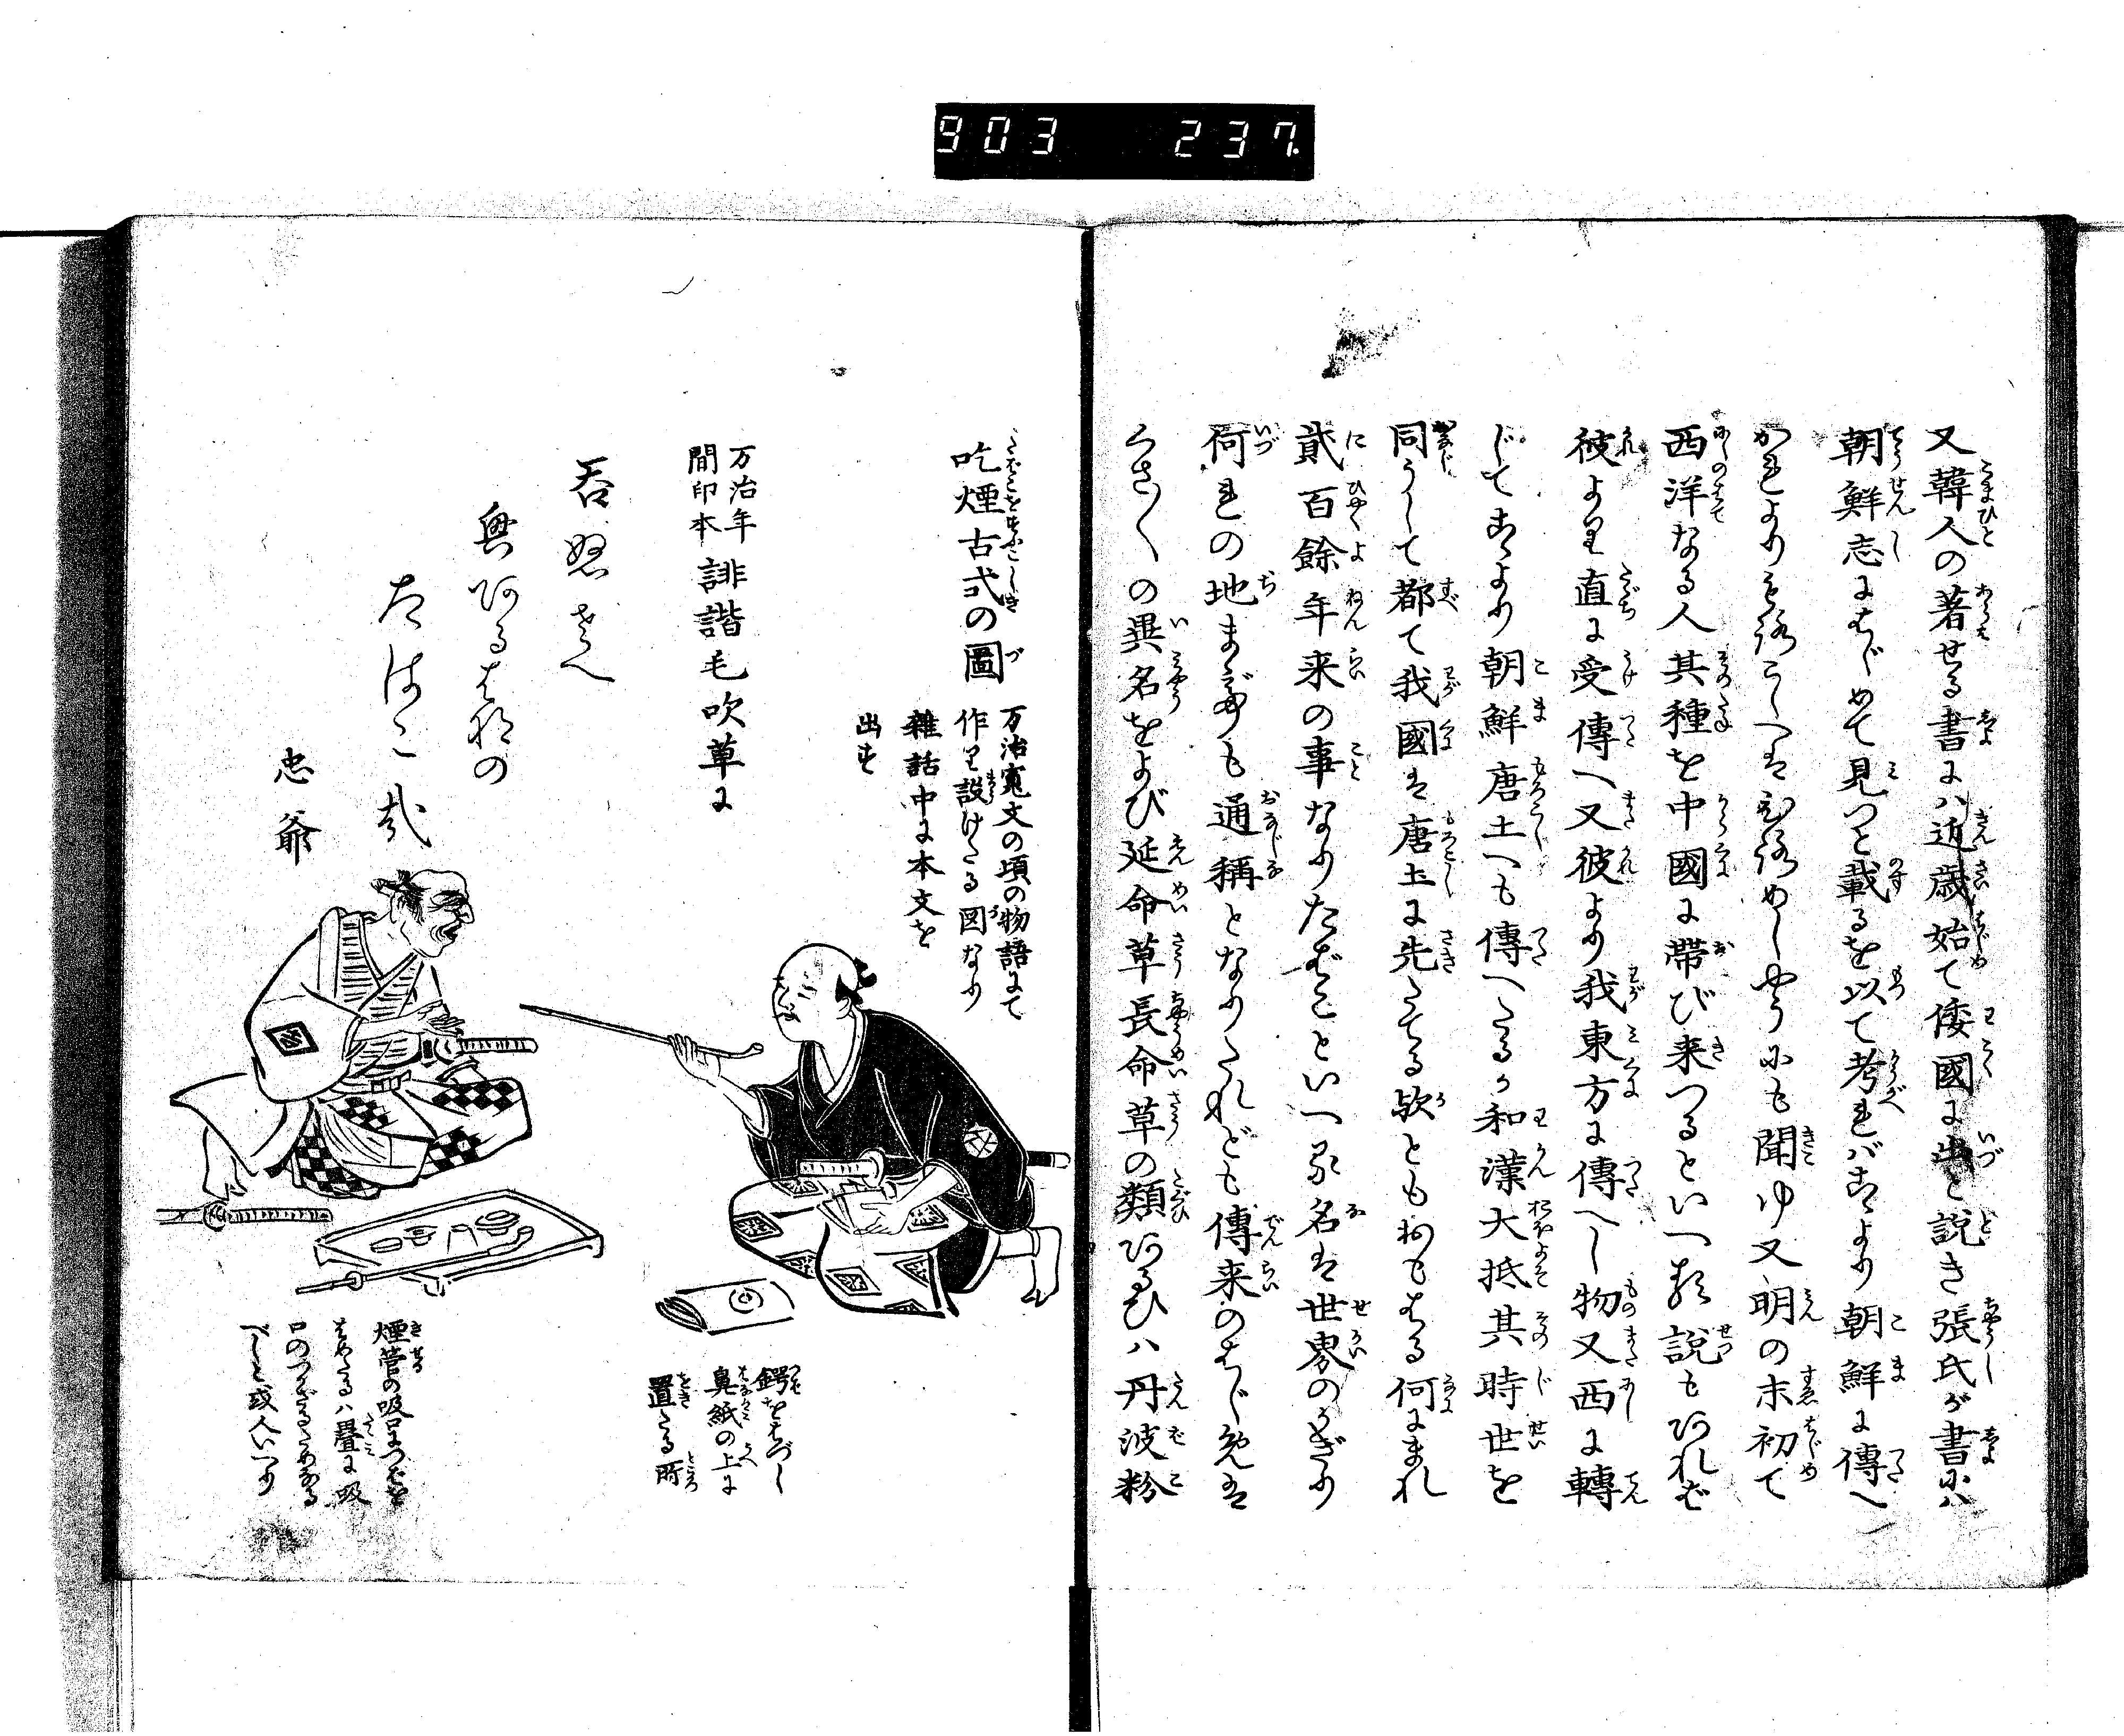 903 237.
又韓人の著せる書に八近歳始て倭國に出と説き張氏が書にハ
朝鮮志にはじめて見つと載るを以て考れバ是より朝鮮に傳へ
聞ゆ又明の末初て
西洋なる人其種を中國に帯び来つるといへる説もあれど
彼より直に受傳へ又彼より我東方に傳へし物又西に轉
じて是より朝鮮唐土へも傳へたるか和漢大抵其時世を
同うして都て我國は唐土に先たてる歟ともおもはる何にまれ
貳百餘年来の事なりたばこといへる名は世界のかぎり
何れの地までも通稱となりたれども傳来のはじめは
くさ〲の異名をよび延命草長命草の類あるひハ丹波粉
吃煙古式の圖
万治寛文の頃の物語にて
作り設けたる図なり
雜話中に本文を
出す
万治年
間印本
誹諧毛吹草に
呑怒さへ
輿あるはなの
たはこ哉
忠爺
鍔をはづし
鼻紙の上に
置たる所
煙管の吸口につばを
はめたるハ疊に吸
口のつかざるためなる
べしと或人いへり